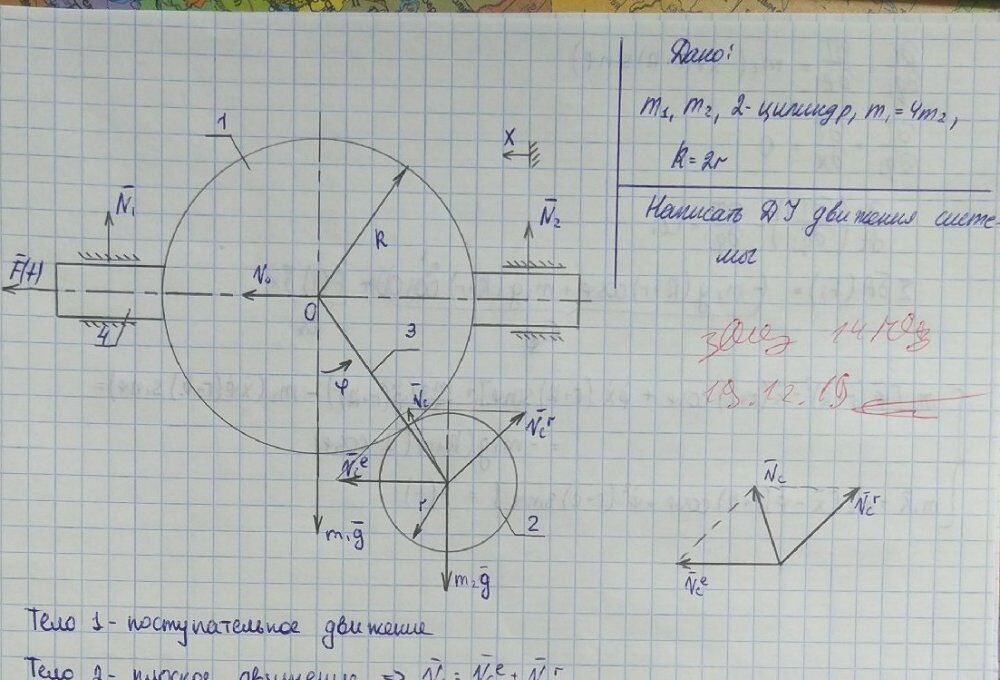 Дано:
m₁, m₂, 2-цилиндр, m₁=4m₂,
R=2r
Написать ДУ движения систе-
мы
19.12.19
1
X
N̄₁
N̄₂
R
F̄(t)
V₀
O
4
3
φ
V̄c
V̄cʳ
V̄cᵉ
r
2
m₁ḡ
m₂ḡ
V̄c
V̄cʳ
V̄cᵉ
Тело 1 - поступательное движение
Тело 2 - плоское движение => V̄c = V̄cᵉ + V̄cʳ